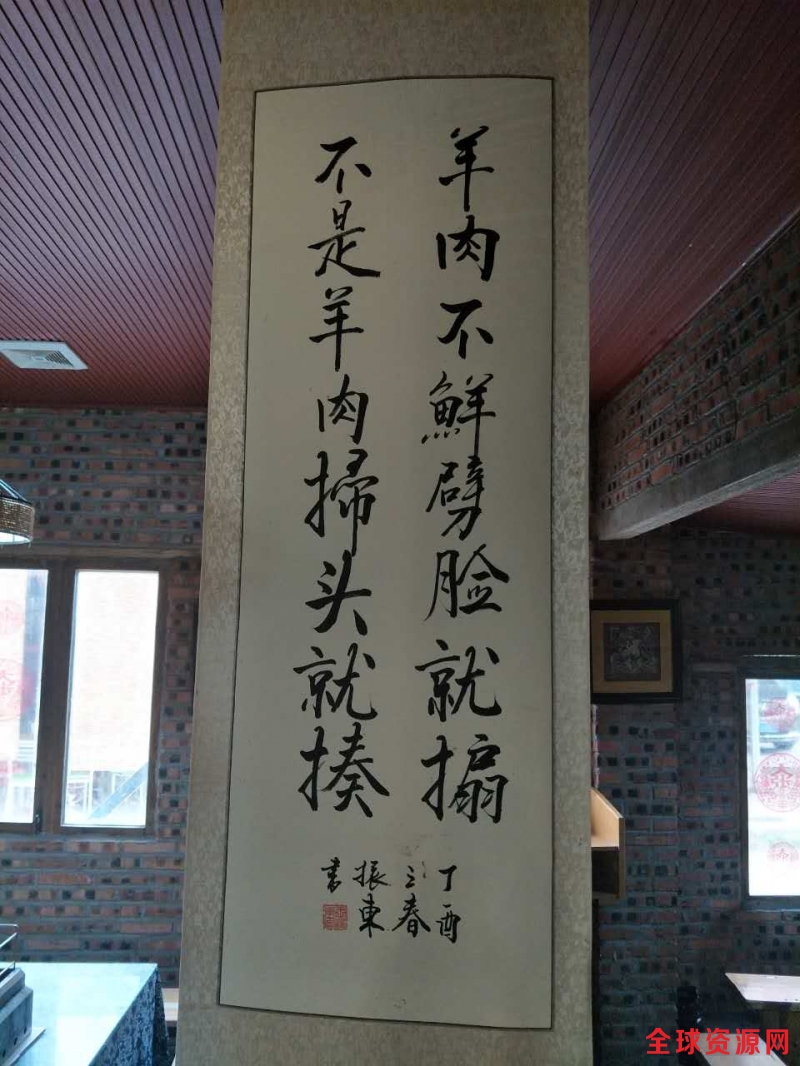 羊肉不鮮劈脸就搧
不是羊肉掃头就揍
丁酉
三春
振東
書
全球资源网